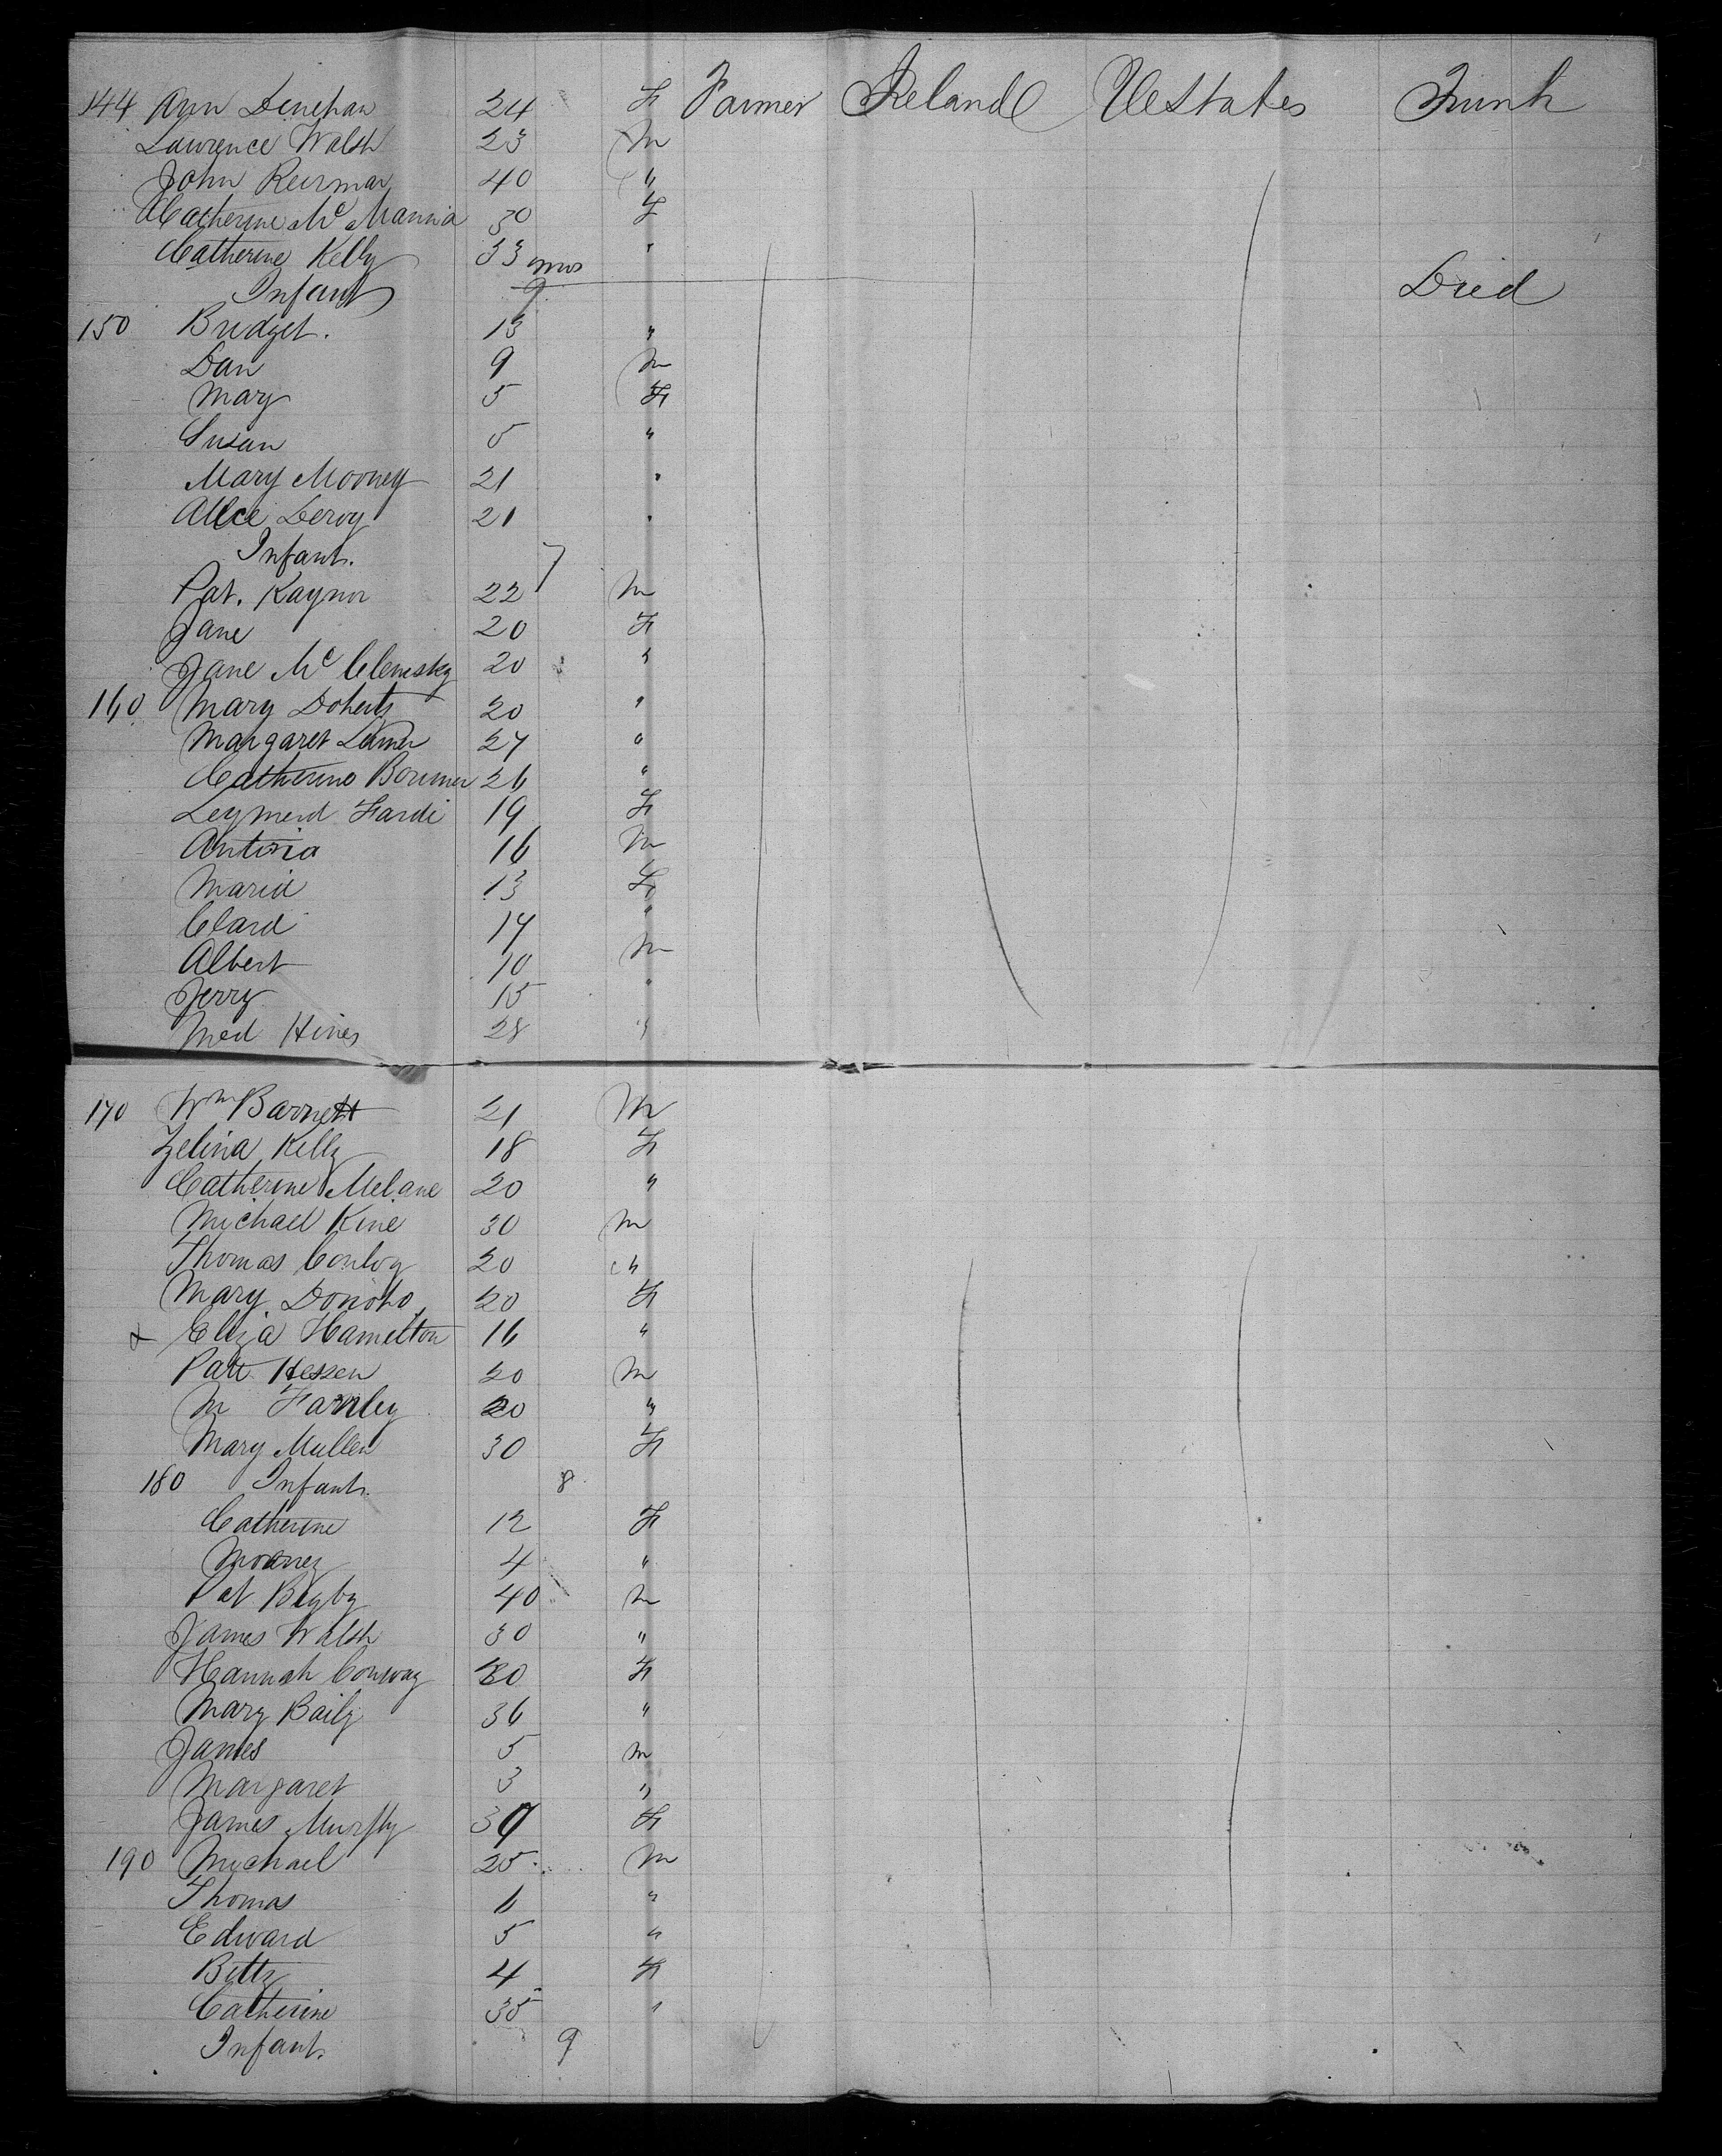 144 Ann Denehan 24 F Farmer Ireland UeStates Trunk
Lawrence Walsh 23 M
John 40 "
Catherine Mc Manna 30 F
Catherine Kelly 33 mos "
Infant 9 Died
150 Bridget. 13 "
Dan 9 M
Mary 5 F
Susan 5 "
Mary Mooney 21 "
Alice Leroy 21 "
Infant. 7
Pat. Raynor 22 M
Jane 20 F
Jane Mc Clensky 20 "
160 Mary Doherty 20 "
Margaret 27 "
Catherine 26 "
Fardi 19 F
Antonia 16 M
Maria 13 F
Clara 17 "
Albert 10 M
Jerry 15 "
Med Hines 28 "
170 Wm Barnett 21 M
Zelina Kelly 18 F
Catherine Melane 20 "
Michael Kine 30 M
Thomas Conloy 20 "
Mary Donoho 20 F
x Eliza Hamelton 16 "
Patt Hessen 20 M
M Farnley 20 "
Mary Mullen 30 F
180 Infant. 8
Catherine 12 F
Mooney 4 "
Pat Bigby 40 M
James Walsh 30 "
Hannah Conway 30 F
Mary Baily 36 "
James 5 M
Margaret 3 "
James Murphy 39 F
190 Michael 25 M
Thomas 6 "
Edward 5 "
Betty 4 F
Catherine 35 "
Infant. 9